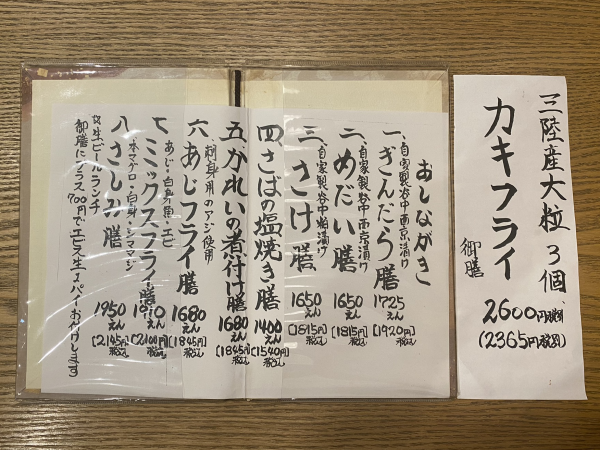 三陸産大粒 3個
カキフライ
御膳
2600円税込
(2365円税別)
おしながき
自家製谷中西京漬け
一、ぎんだら膳
1725えん
(1920円税込)
自家製谷中西京漬け
二、めだい膳
1650えん
(1815円税込)
自家製谷中粕漬け
三、さけ膳
1650えん
(1815円税込)
四、さばの塩焼き膳
1400えん
(1540円税込)
五、かれいの煮付け膳
1680えん
(1845円税込)
刺身用のアジ使用
六、あじフライ膳
1680えん
(1845円税込)
あじ・白身魚・エビ
七、ミックスフライ膳
1910えん
(2100円税込)
本マグロ・白身・シマアジ
八、さしみ膳
1950えん
(2145円税込)
生ビールランチ
御膳にプラス700円でエビス生1パイお付けします